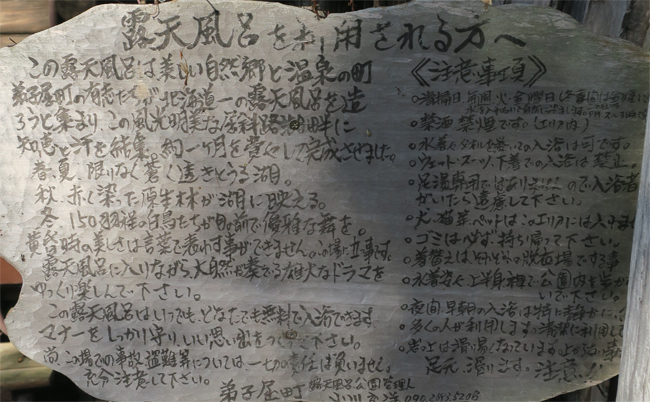 露天風呂を利用される方へ
この露天風呂は美しい自然郷と温泉の町
弟子屈町の有志たちが、北海道一の露天風呂を造
ろうと集まり、この風光明美な屈斜路湖畔に
知恵と汗を結集。約一ヶ月を費々して完成させました。
春、夏、限りなく蒼く透きとうる湖。
秋、赤く染った原生林が湖に映える。
冬、150羽程の白鳥たちが目の前で優雅な舞を。
黄昏時の美しさは言葉で表わす事ができません。この場に立事です。
露天風呂に入りながら、大自然が奏でる雄大なドラマを
ゆっくり楽しんで下さい。
この露天風呂はいつでも、どなたでも無料で入浴できます。
マナーをしっかり守り、いい思い出をつくって下さい。
尚、この場での事故、盗難等については一切責任は負いません。
充分注意して下さい。
弟子屈町 露天風呂公園管理人
《注意事項》
○清掃日
○禁酒、禁煙です。(エリア内)
○水着やタオルを巻いての入浴は可です。
○ウェットスーツ、下着での入浴は禁止。
○足湯専用ではありませんので入浴者
がいたら遠慮して下さい。
○犬、猫等ペットはこのエリアには入れま
○ゴミは必ず持ち帰って下さい。
○着替えは
○水着姿や上半身裸で公園内を歩か
いで下さい。
○夜間、早朝の入浴は特に静かに
○多くの人が利用します。清潔に利用して
○岩の上は滑り易くなっています。
足元、滑ります。注意!!